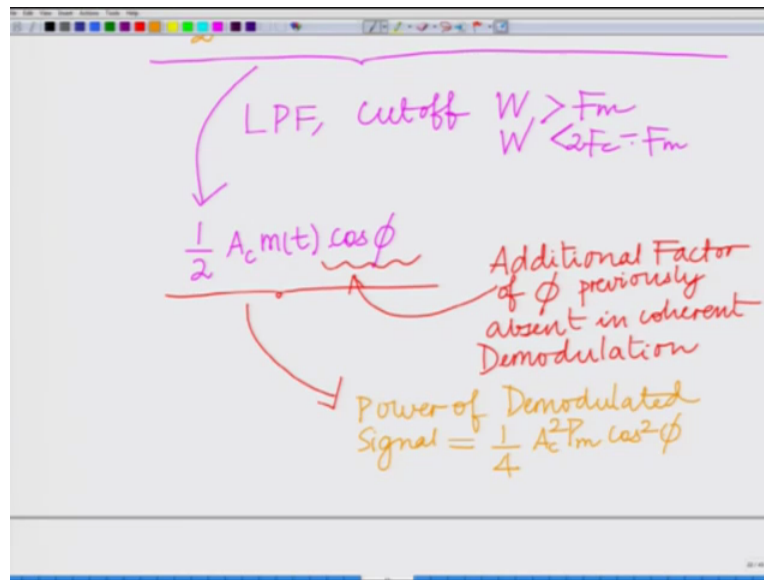 LPF, cutoff W > Fm
W < 2Fc - Fm
1/2 Ac m(t) cos ϕ
Additional Factor
of ϕ previously
absent in coherent
Demodulation
Power of Demodulated
Signal = 1/4 Ac² Pm cos² ϕ